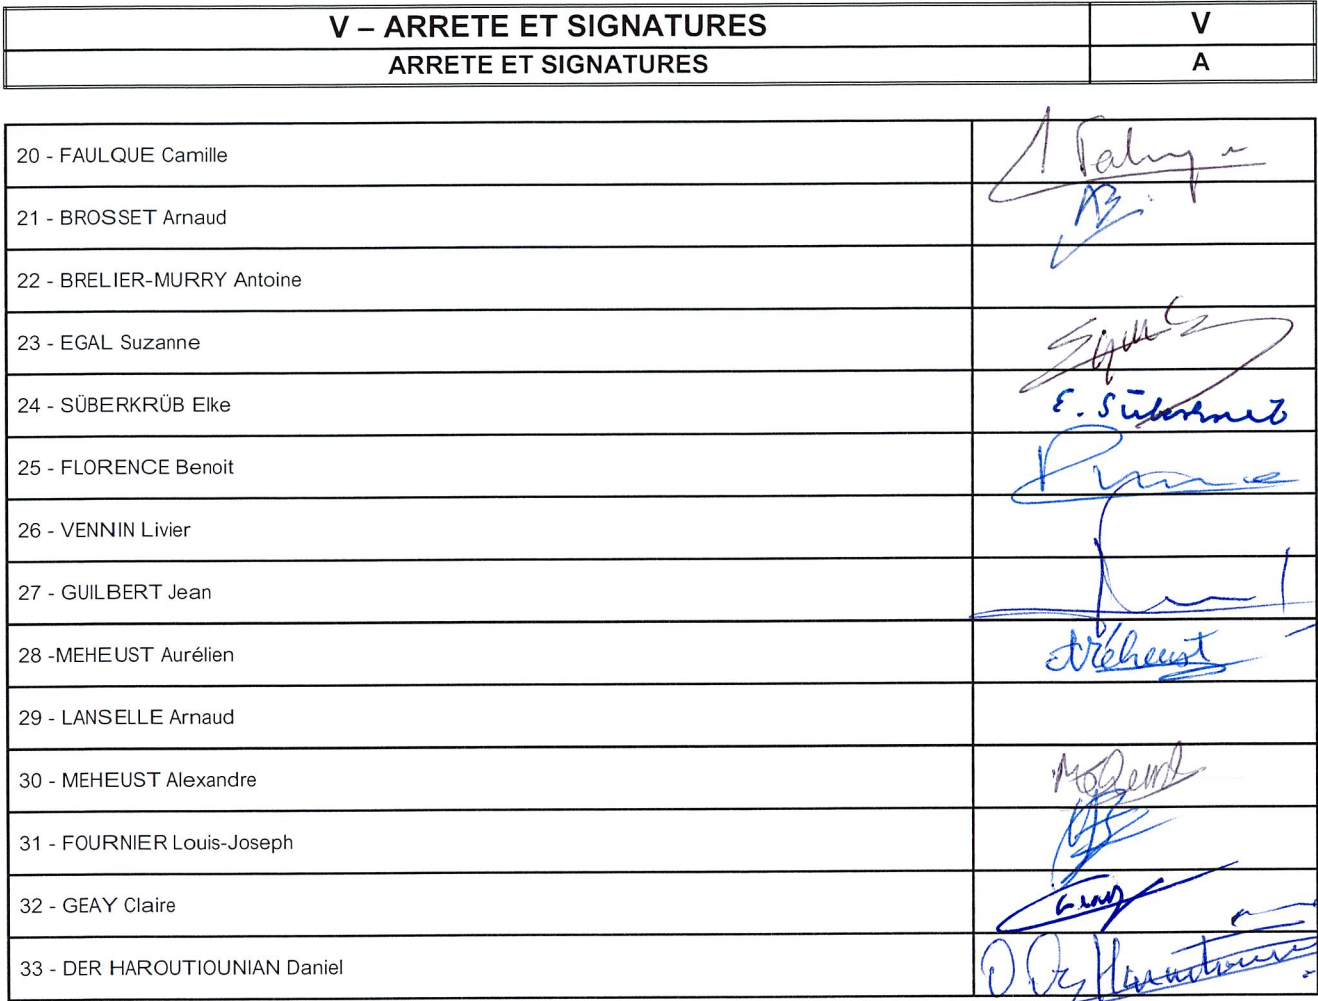 V – ARRETE ET SIGNATURES V
ARRETE ET SIGNATURES A
20 - FAULQUE Camille
21 - BROSSET Arnaud AB
22 - BRELIER-MURRY Antoine
23 - EGAL Suzanne
24 - SÜBERKRÜB Elke
25 - FLORENCE Benoit
26 - VENNIN Livier
27 - GUILBERT Jean
28 -MEHEUST Aurélien Méheust
29 - LANSELLE Arnaud
30 - MEHEUST Alexandre
31 - FOURNIER Louis-Joseph
32 - GEAY Claire Geay
33 - DER HAROUTIOUNIAN Daniel